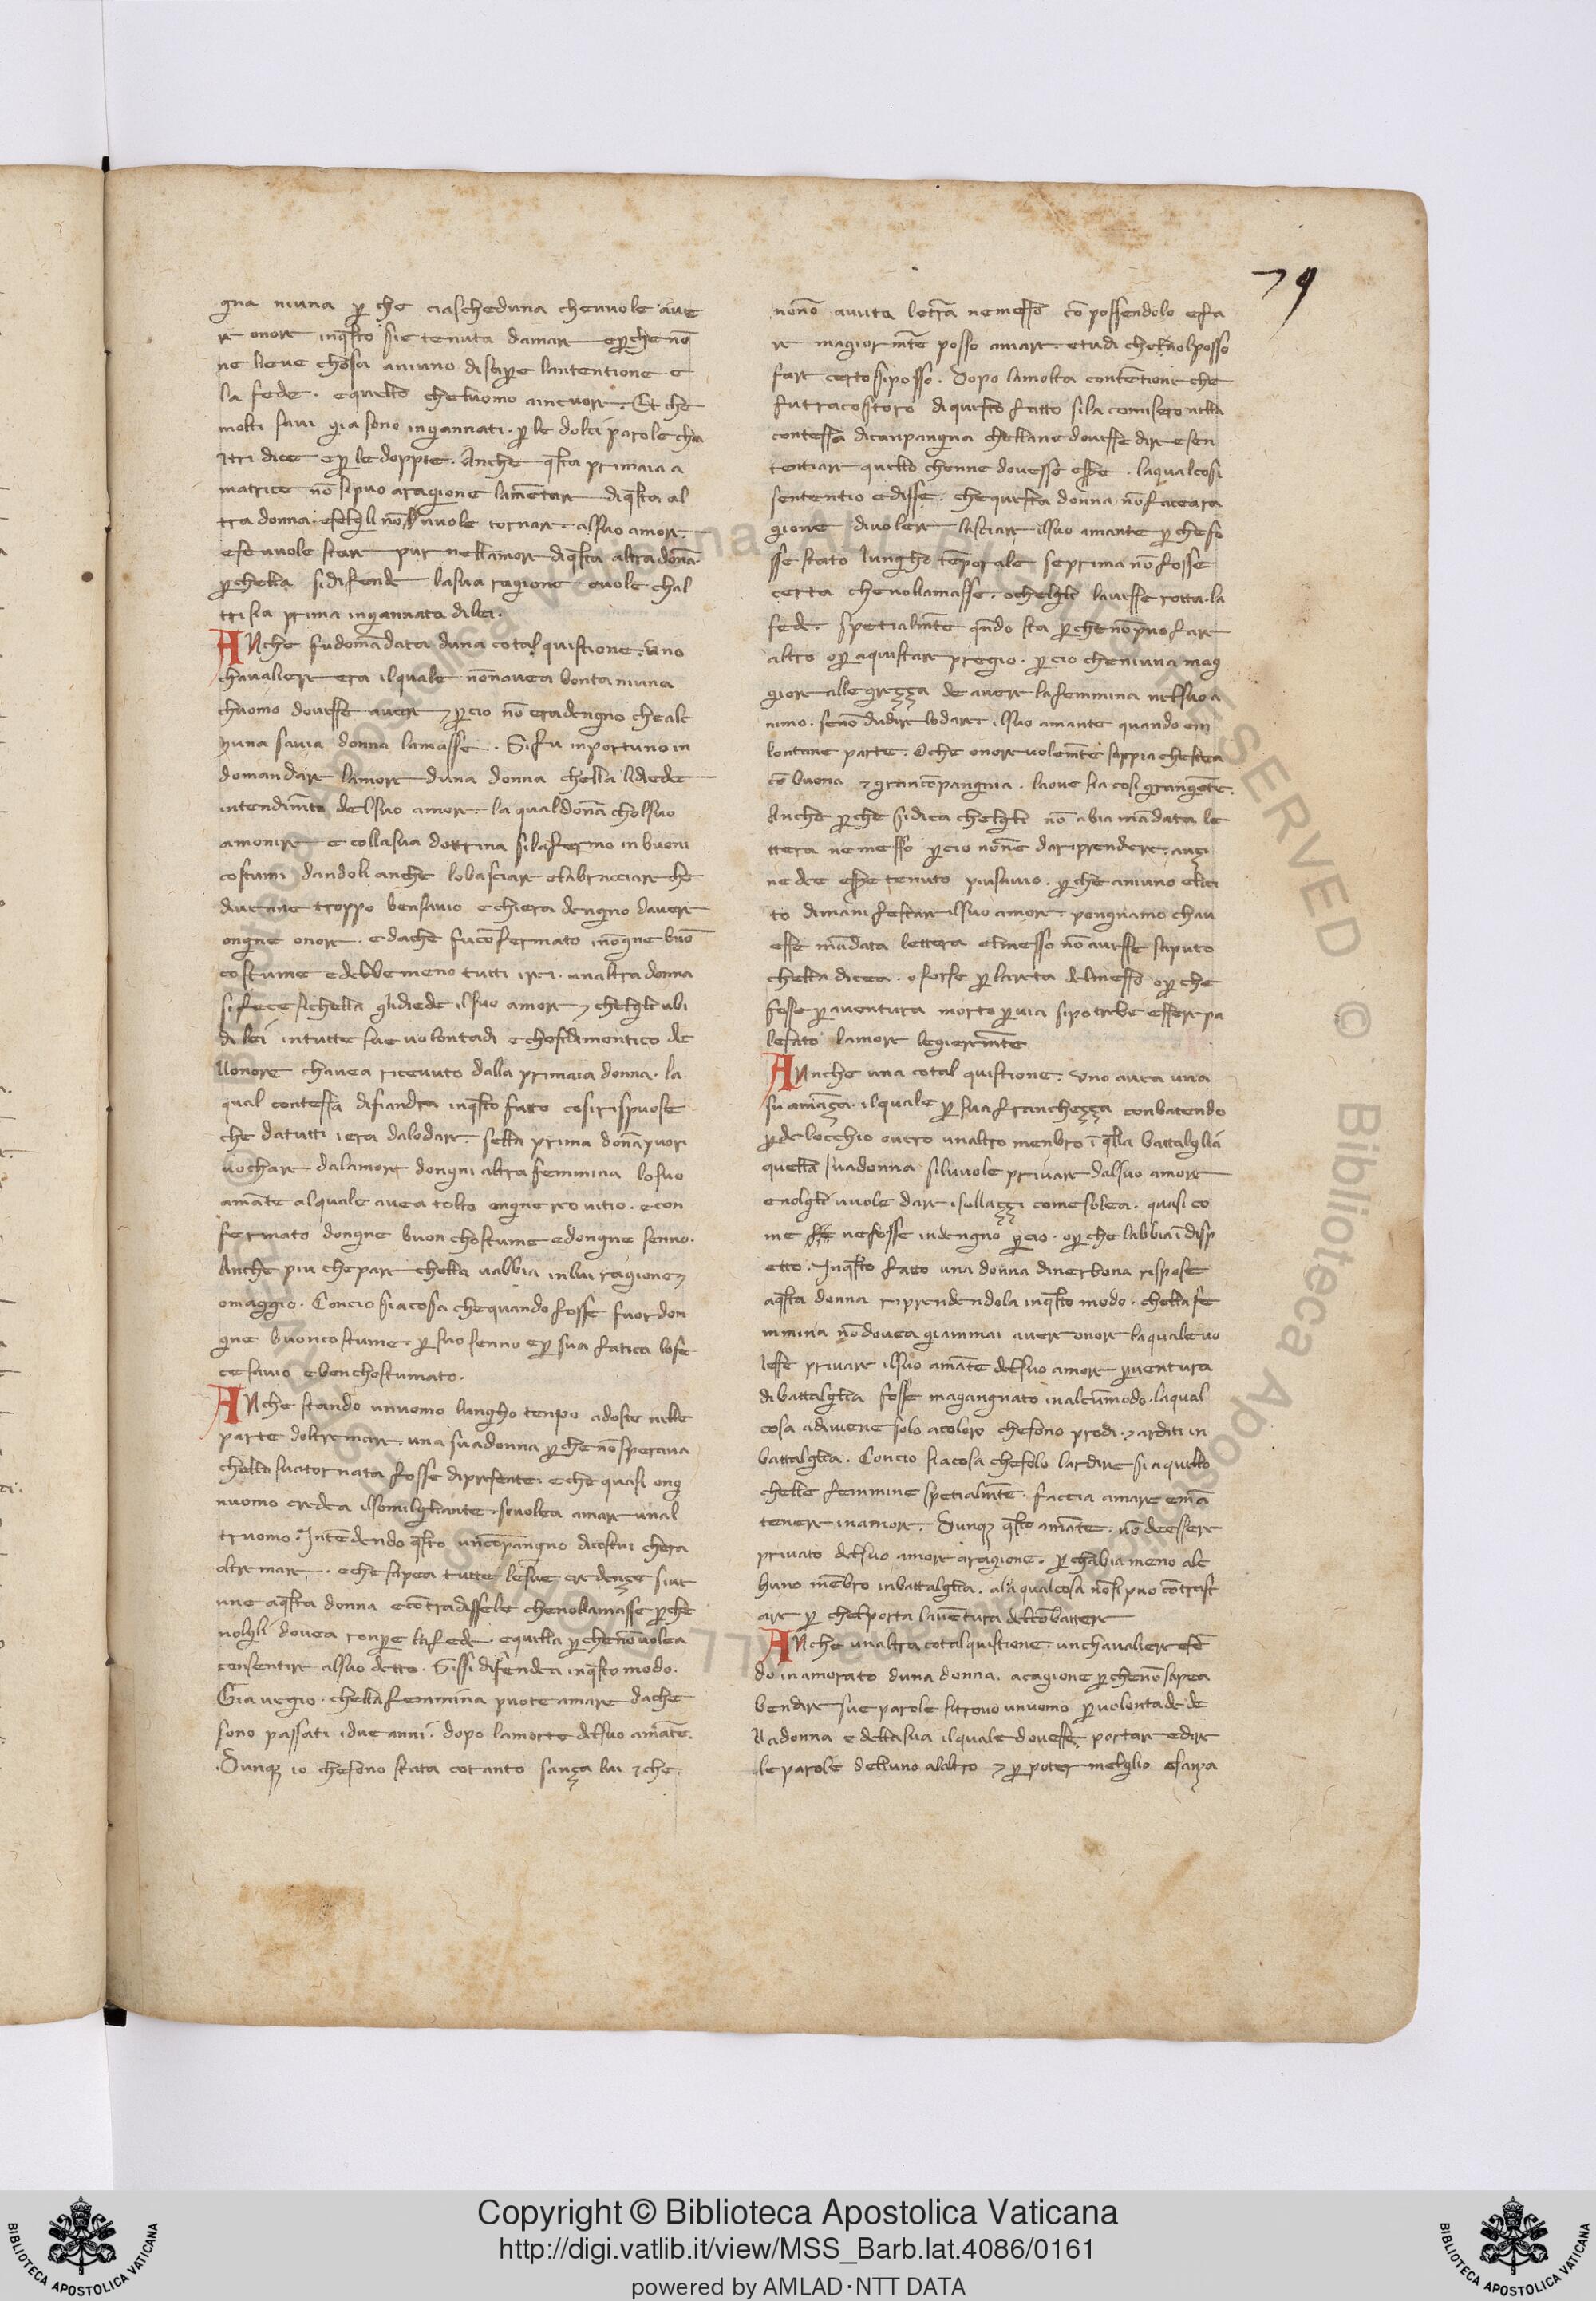 79
gna niuna per che ciascheduna chevuole ave
re onore inqsto sie tenuta damare eperche nō
ne lieve chosa aniuno disapere lantentione e
la fede. equello cheluomo aincuore. Et che
molti savi gia sono ingannati. per le dolci parole cha
ltri dice eper ledoppie. Anche qsta primaia a
matrice nō sipuo aragione lamētare diqsta al
tra donna. esehgli nō vuole tornare alsuo amore.
esevuole stare pur nellamore diqsta altra dōna.
perchella sidifende lasua ragione evole chal
tri sia prima ingannata dilei.
ANche fudomādata duna cotal quistione. uno
chavaliere era ilquale nonnavea bonta niuna
chuomo dovesse avere percio nō eradengno che alc
huna savia donna lamasse. Sifu inportuno in
domandare lamore duna donna chella lidiede
intendimēto delsuo amore. la qualdōna cholsuo
amonire e collasua dottrina silafermo in buoni
costumi dandoli anche lobasciare elabracciare che
divenne troppo bensavio echiera dengno davere
ongne onore. edache fuconfermato inōgne buō
costume edebbemeno tutti irei. unaltra donna
sifece sichella glidiede ilsuo amore chehgli ubi
di lei intutte sue volontadi echosidimentico de
llonore chavea ricevuto dalla primaia donna. la
qual contessa difiandra inqsto fatto cosirispuose
che datutti iera dalodare. sella prima donā puori
vochare dalamore dongni altra femmina losuo
amāte alquale avea tolto ongnereo vitio. econ
fermato dongne buon chostume edongne senno.
Anche piu chepare chella vabbia inlui ragione
omaggio. Concio siacosa chequando fosse fuordon
gne buoncostume. per suo senno eper sua fatica lofe
ce savio ebenchostumato.
ANche stando unuomo lungho tenpo adoste nelle
parte doltremare. una suadonna per che nōsperava
chella suatornata fosse dipresente. eche quasi ong
nuomo credea ilsomilgliante. sivolea amare unal
truomo. Intēdendo qsto uncōpangno dicostui chera
oltremare. eche sapea tutte lesue credenze siue
nne aqsta donna econtradissele chenollamasse perche
nolgli dovea ronpere lafede. equella perchenōvolea
consentire alsuo detto. Sissi difendea inqsto modo.
Gia vegio. chella femmina puote amare dache
sono passati idue anni. dopo lamorte delsuo amāte.
Dunque io chesono stata cotanto sanza lui che
nonō avuta letera nemesso cō possendolo efa
re magiormēte posso amare. etudi chenolposso
fare certo siposso. Dopo lamolta contētione che
futracostoro diquesto fatto sila comisero nella
contessa dicanpangna chellane dovesse dire esen
tentiare quello chenne dovesse essere. laqualcosi
sententio edisse. chequesta donna nō facea ra
gione divolere lasciare ilsuo amante per chefo
sse stato lungho tenporale seprima nō fosse
certa chenollamasse. ochelgli lavesse rotta. la
fede. spetialmēte qndo sta perchenōpuo fare
altro oper aquistare pregio. per cio cheniuna mag
giore allegrezza de avere lafemmina nelsuo a
nimo. senō dudire lodare. ilsuo amante quando ein
lontane parte. Oche onorevolemēte sappia chestea
cō buona & grancōpangnia. laove sia cosi grangēte.
Anche perche sidica chelgli nō abia mādata le
ttera nemesso percio nonne dariprendere. anzi
nedee essere tenuto piusavio. perche aniuno eleci
to dimanifestare ilsuo amore. pongnamo chav
esse mādata lettera elmesso nō avesse saputo
chella dicea. oforse per lareta delmesso oper che
fosse per aventura morto per via sipotrebe essere pa
lesato lamore legiermēte
ANche una cotal quistione. Uno avea una
su amāza. ilquale per sua franchezza conbattendo
perde locchio overo unaltro menbro ī qlla battalglia
quella suadonna siluuole privare dalsuo amore
enolgli vuole dare isollazzi comesolea. quasi co
me nefosse indengno percio. oper che labbia ī disp
etto. Inqsto fatto una donna dinerbona rispose
aqsta donna riprendendola inqsto modo. chella fe
mmina nō dovea giammai avere onore laqualevo
lesse privare ilsuo amāte delsuo amore perventura
dibattalglia fosse magangnato inalcunmodo. laqual
cosa adiviene solo acoloro chesono prodi. arditi in
battalglia. Concio siacosa chesolo lardire sia quello
chelle femmine spetialmēte. faccia amare emā
tenere inamore. Dunque qsto amāte. nō deessere
privato delsuo amore aragione. per chabia meno alc
huno mēbro inbattalglia. ala qualcosa nōsi puo cōtrast
are per chelporta laventura delconbattere
ANche unaltra cotalquistione. unchavaliere esē
do inamorato duna donna. acagione perchenō sapea
bendire sue parole sitrovo unuomo pervolontade de
lladonna e dellasua ilquale dovesse portare edire
le parole delluno alaltro per poter melglio esanza
Copyright © Biblioteca Apostolica Vaticana
http://digi.vatlib.it/view/MSS_Barb.lat.4086/0161
powered by AMLAD·NTT DATA
BIBLIOTECA APOSTOLICA VATICANA
BIBLIOTECA APOSTOLICA VATICANA